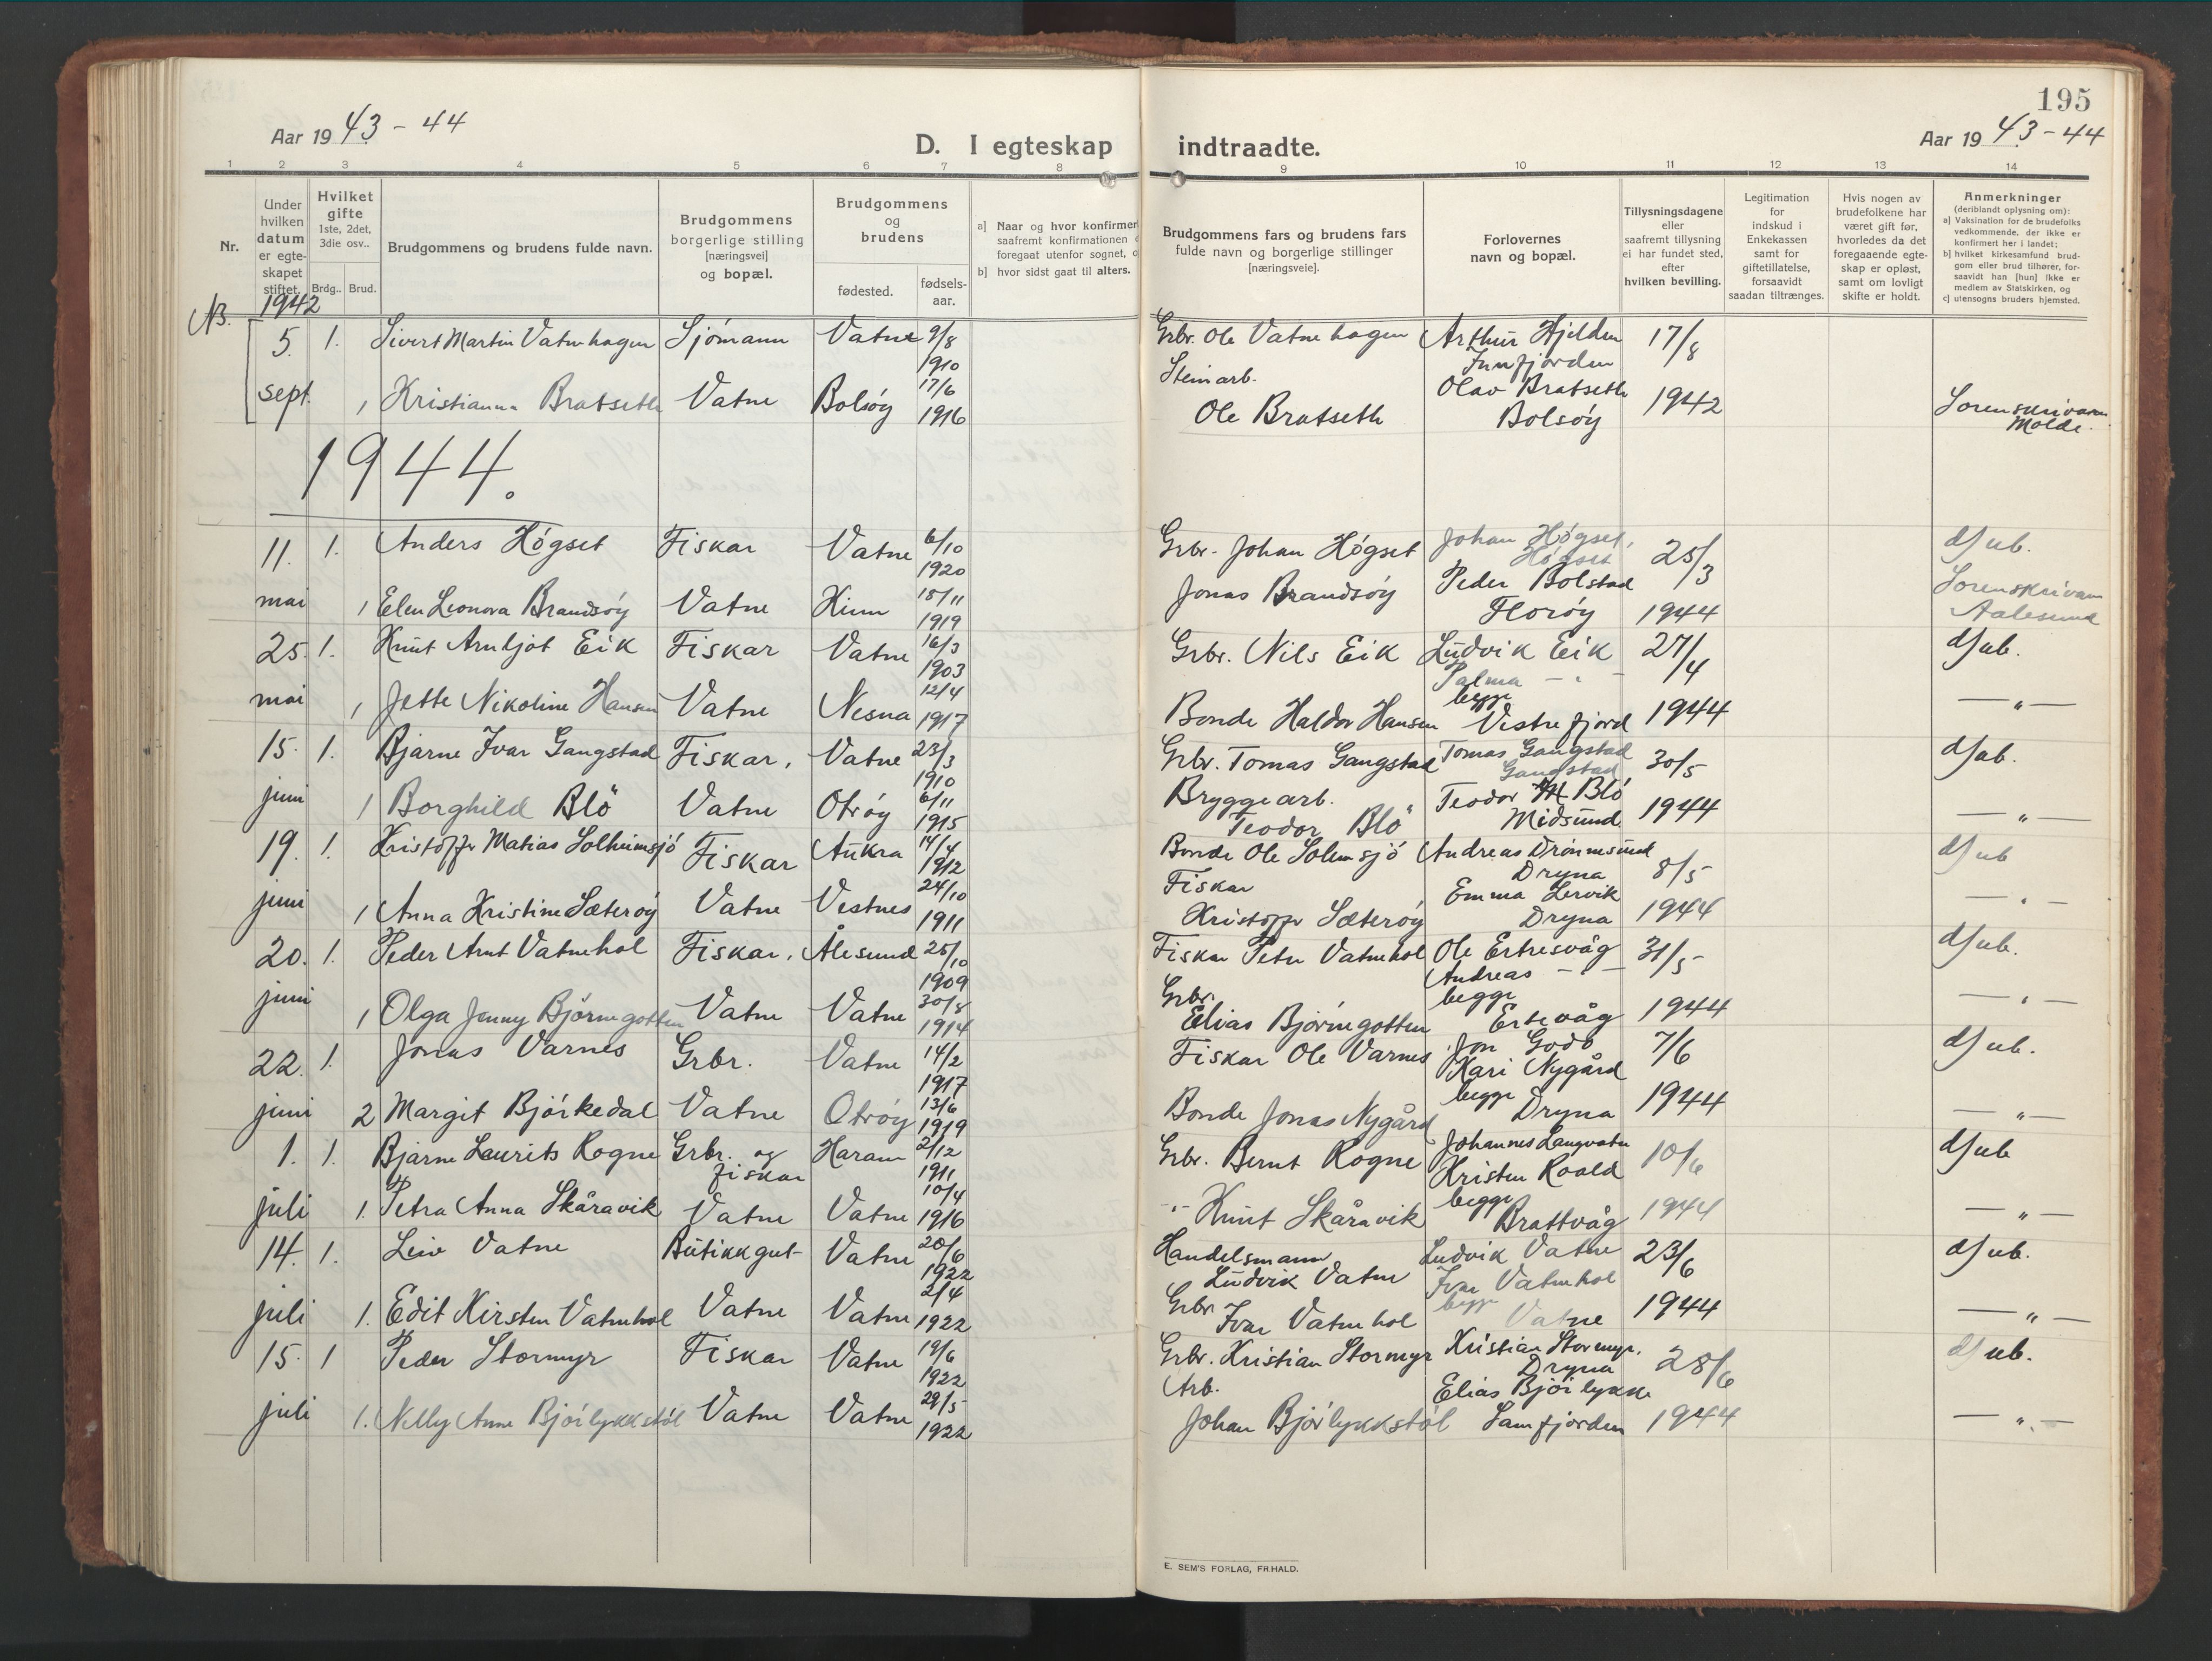 195
Aar 19 43 - 44
D. I egteskap indtraadte.
Aar 19 43 - 44
1 2 3 4 5 6 7 8 9 10 11 12 13 14
Nr.
Under hvilken datum er egteskapet stiftet.
Hvilket gifte 1ste, 2det, 3die osv..
Brdg.. Brud.
Brudgommens og brudens fulde navn.
Brudgommens borgerlige stilling [næringsvei] og bopæl.
Brudgommens og brudens
fødested.
fødsels-aar.
a) Naar og hvor konfirmer
saafremt konfirmationen
foregaat utenfor sognet, o
b) hvor sidst gaat til alters.
Brudgommens fars og brudens fars fulde navn og borgerlige stillinger [næringsveie].
Forlovernes navn og bopæl.
Tillysningsdagene eller saafremt tillysning ei har fundet sted, efter hvilken bevilling.
Legitimation for indskud i Enkekassen samt for giftetillatelse, forsaavidt saadan tiltrænges.
Hvis nogen av brudefolkene har været gift før, hvorledes da det foregaaende egteskap er opløst, samt om lovligt skifte er holdt.
Anmerkninger
(deriblandt oplysning om):
a) Vaksination for de brudefolks vedkommende, der ikke er konfirmert her i landet;
b) hvilket kirkesamfund brudgom eller brud tilhører, forsaavidt han [hun] ikke er medlem av Statskirken, og
c) utensogns bruders hjemsted.
NB. 1942
5. 1. Sivert Martin Vatnehagen Sjómann Vatne 9/8 1910 Grbr. Ole Vatnehagen Arthur Hjelden Innfjorden 17/8
sept. 1 Kristianna Bratseth Vatne Bolsóy 17/6 1916 Steinarb. Ole Bratseth Olav Bratseth Bolsóy 1942 Sorenskrivaren Molde.
1944.
11. 1. Anders Hógset Fiskar Vatne 6/10 1920 Grbr. Johan Hógset Johan Høgset, Høgset 25/3 d/ub.
mai 1 Elen Leonora Brandsóy Vatne Kinn 15/11 1919 Jonas Brandsóy Peder Bolstad Floróy 1944 Sorenskrivaren Aalesund
25. 1. Knut Arnljot Eik Fiskar Vatne 16/3 1903 Grbr. Nils Eik Ludvik Eik 27/4 d/ub.
mai 1 Jette Nikoline Hansen Vatne Nesna 12/4 1917 Bonde Haldor Hansen Palma - " - begge Vestrefjord 1944 - " -
15. 1. Bjarne Ivar Gangstad Fiskar, Vatne 23/3 1910 Grbr. Tomas Gangstad Tomas Gangstad Gangstad 30/5 d/ub.
juni 1 Borghild Bló Vatne Otróy 6/11 1915 Bryggearb. Teodor Bló Teodor Bló Midsund 1944 - " -
19. 1. Kristoffer Matias Solheimsjó Fiskar Aukra 14/4 1912 Bonde Ole Solemsjó Andreas Drónnesund Dryna 8/5 d/ub
juni 1 Anna Kristine Sæteróy Vatne Vestnes 24/10 1911 Fiskar Kristoffer Sæteróy Emma Lervik Dryna 1944 - " -
20. 1. Peder Arnt Vatnehol Fiskar, Ålesund 25/10 1909 Fiskar Peter Vatnehol Ole Ertresvåg 31/5 d/ub.
juni 1 Olga Jenny Bjórnegotten Vatne Vatne 30/8 1914 Grbr. Elias Bjórnegotten Andreas - " - begge Ertevåg 1944 - " -
22. 1. Jonas Varnes Grbr. Vatne 14/2 1917 Fiskar Ole Varnes Jon Godó 7/6 d/ub.
juni 2 Margit Bjórkedal Vatne Otróy 13/6 1919 Bonde Jonas Nygård Kari Nygård begge Dryna 1944 - " -
1. 1. Bjarne Laurits Rogne Grbr. og fiskar Haram 2/12 1911 Grbr. Bernt Rogne Johannes Langvatn 10/6 d/ub
juli 1. Petra Anna Skåravik Vatne Vatne 10/4 1916 - " - Knut Skåravik Kristen Roald begge Brattvåg 1944 - " -
14. 1. Leiv Vatne Butikkgut Vatne 20/6 1922 Handelsmann Ludvik Vatne Ludvik Vatne 23/6 d/ub.
juli 1. Edit Kirsten Vatnehol Vatne Vatne 2/4 1922 Grbr Ivar Vatnehol Ivar Vatnehol begge Vatne 1944 - " -
15. 1 Peder Stormyr Fiskar Vatne 19/6 1922 Grbr. Kristian Stormyr Kristian Stormyr. Dryna 28/6 d/ub.
juli 1. Nelly Anne Bjórlykkstól Vatne Vatne 29/5 1922 Arb. Johan Bjórlykkstól Elias Bjórlykke Samfjorden 1944 - " -
E. SEM'S FORLAG, FR.HALD.